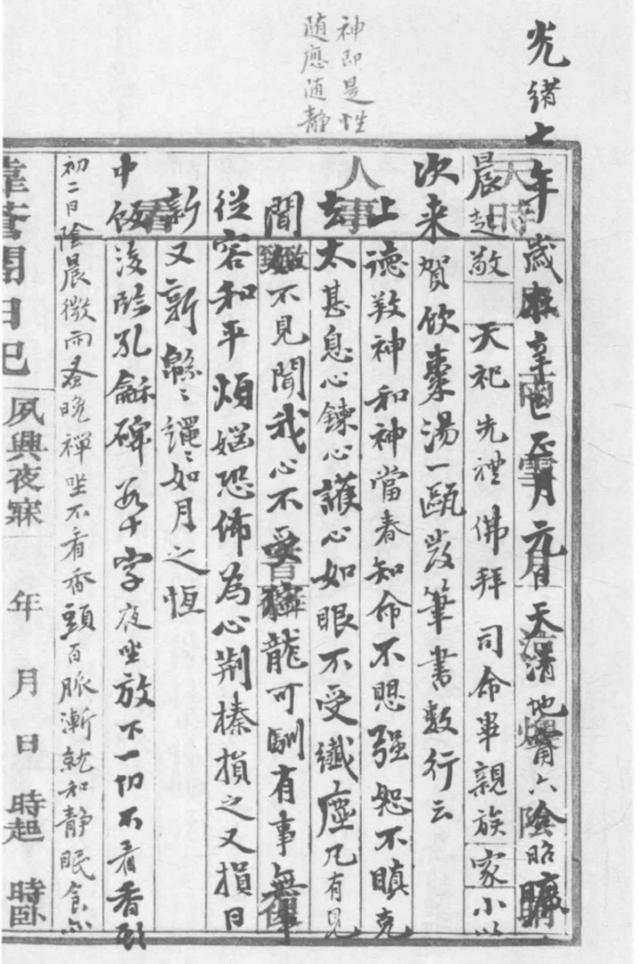 神即是性
随應随静
光緒七年歲在辛巳正月元日天清地甯六陰昭曠
晨起敬天祀先禮佛拜司命畢親族家小以
次来賀飲棗湯一甌发筆書数行云
上德敦神和神當春知命不愳强恕不瞋克
去太甚息心鍊心護心如眼不受纖塵凡有見
聞如不見聞我心不受獰龍可馴有事無事
從容和平煩惱恐怖為心荆榛損之又損日
新又新緜〻繩〻如月之恆
中飯後臨孔龢碑五十字夜坐放下一切不看香頭
初二日陰晨微雨蚤晚禪坐不看香頭百脈漸就和静眠食
日記
夙興夜寐 年 月 日 時起 時卧
天時
人事